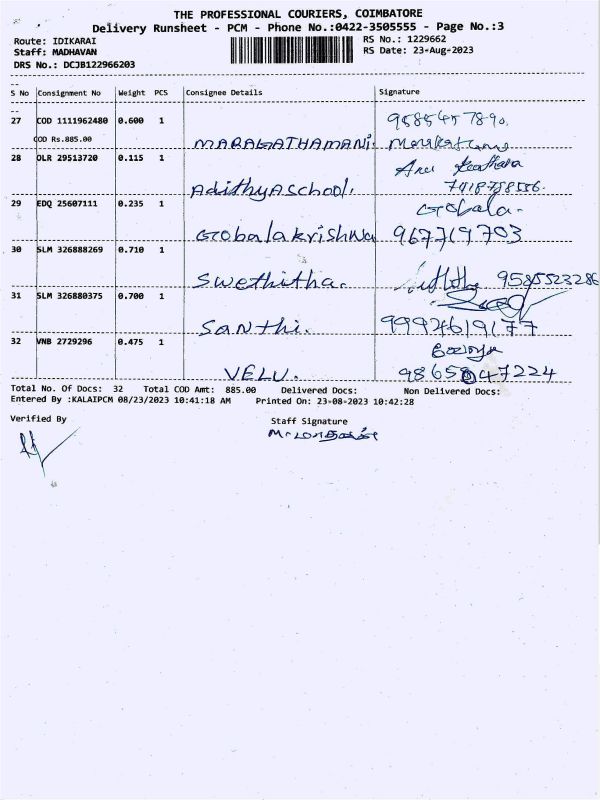 THE PROFESSIONAL COURIERS, COIMBATORE
Delivery Runsheet - PCM - Phone No.:0422-3505555 - Page No.:3
Route: IDIKARAI
RS No.: 1229662
Staff: MADHAVAN
RS Date: 23-Aug-2023
DRS No.: DCJB122966203
S No Consignment No Weight PCS Consignee Details Signature
27 COD 1111962480 0.600 1 9585457890
COD Rs.885.00 MARAGATHAMANI.
28 DLR 29513720 0.115 1
Adithya school.
29 EDQ 25607111 0.235 1 Gobala.
Gobalakrishna 967719703
30 SLM 326888269 0.710 1
Swethitha. 9585523286
31 SLM 326880375 0.700 1
Santhi. 9994619177
32 VNB 2729296 0.475 1
VELU. 9865047224
Total No. Of Docs: 32 Total COD Amt: 885.00 Delivered Docs: Non Delivered Docs:
Entered By :KALAIPCM 08/23/2023 10:41:18 AM Printed On: 23-08-2023 10:42:28
Verified By Staff Signature